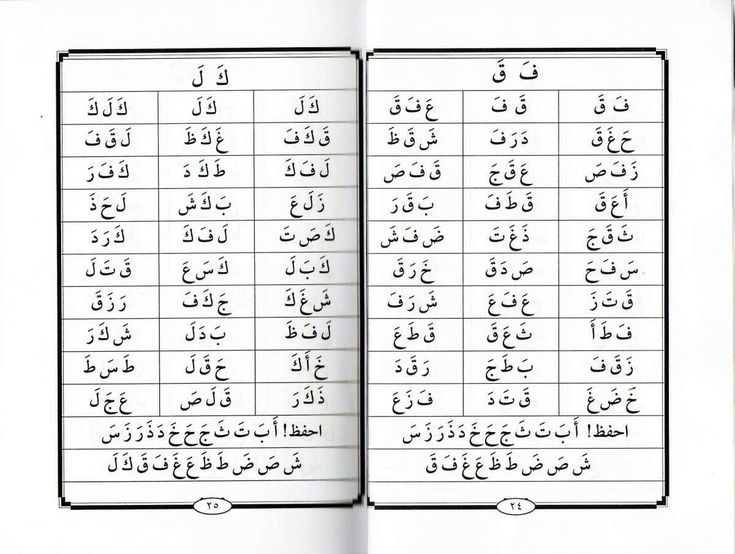 فَ قَ
فَ قَ قَ فَ عَ فَ قَ
حَ غَ قَ دَ رَ فَ شَ قَ ظَ
زَ فَ صَ عَ قَ جَ قَ فَ صَ
أَ عَ قَ قَ طَ فَ بَ قَ رَ
ثَ قَ جَ ذَ غَ تَ ضَ فَ شَ
سَ فَ حَ صَ دَ قَ خَ رَ قَ
قَ تَ زَ عَ فَ عَ شَ رَ فَ
فَ طَ أَ ثَ عَ قَ قَ طَ عَ
زَ قَ فَ بَ طَ جَ رَ قَ دَ
خَ ضَ غَ قَ تَ دَ فَ زَ عَ
احفظ! أَ بَ تَ ثَ جَ حَ خَ دَ ذَ رَ زَ سَ
شَ صَ ضَ طَ ظَ عَ غَ فَ قَ
٢٤
كَ لَ
كَ لَ كَ لَ كَ لَ كَ
قَ كَ فَ غَ كَ ظَ لَ قَ فَ
لَ فَ كَ طَ كَ دَ كَ فَ رَ
زَ لَ عَ بَ كَ شَ لَ حَ ذَ
كَ صَ تَ لَ فَ كَ كَ رَ دَ
كَ بَ لَ كَ سَ عَ قَ تَ لَ
شَ غَ كَ جَ كَ فَ رَ زَ قَ
لَ فَ ظَ بَ دَ لَ شَ كَ رَ
خَ أَ كَ حَ قَ لَ طَ سَ طَ
ذَ كَ رَ قَ لَ صَ عَ جَ لَ
احفظ! أَ بَ تَ ثَ جَ حَ خَ دَ ذَ رَ زَ سَ
شَ صَ ضَ طَ ظَ عَ غَ فَ قَ كَ لَ
٢٥